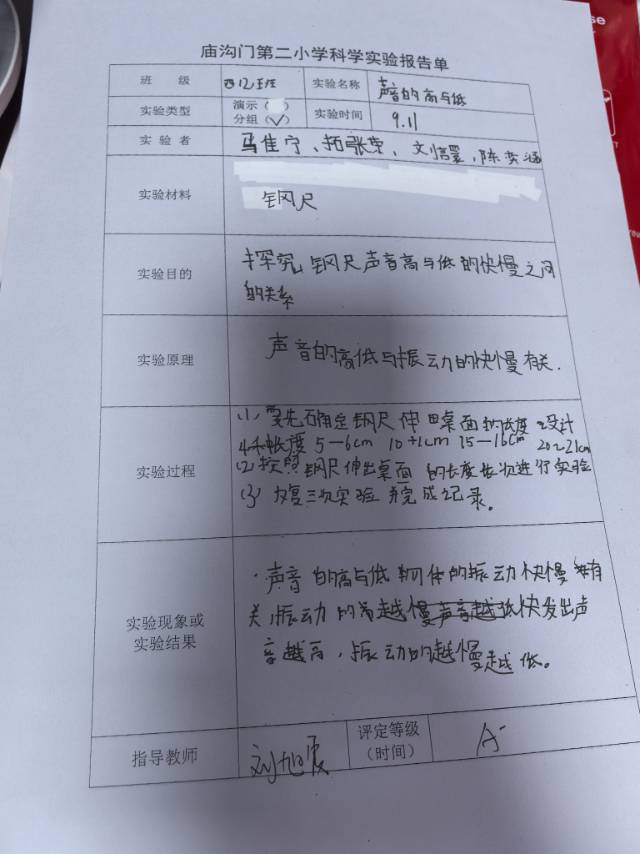 庙沟门第二小学科学实验报告单
班 级 四(2)班 实验名称 声音的高与低
实验类型 演示( )
分组(√) 实验时间 9.11
实 验 者 马佳宁、拓张
实验材料 钢尺
实验目的 探究钢尺声音高与低的快慢之间
的关系
实验原理 声音的高低与振动的快慢有关.
(1) 要先确定钢尺伸出桌面的长度 设计
4 长度 5—6cm 10—11cm 15—16cm 20—21cm
实验过程 (2) 按照钢尺伸出桌面 的长度依次进行实验
(3) 反复三次实验 并完成记录。
声音的高与低物体的振动快慢有
实验现象或 关,振动的 越慢声音越低快发出声
实验结果 音越高,振动的越慢越低。
指导教师 刘旭 评定等级
(时间) A-
se